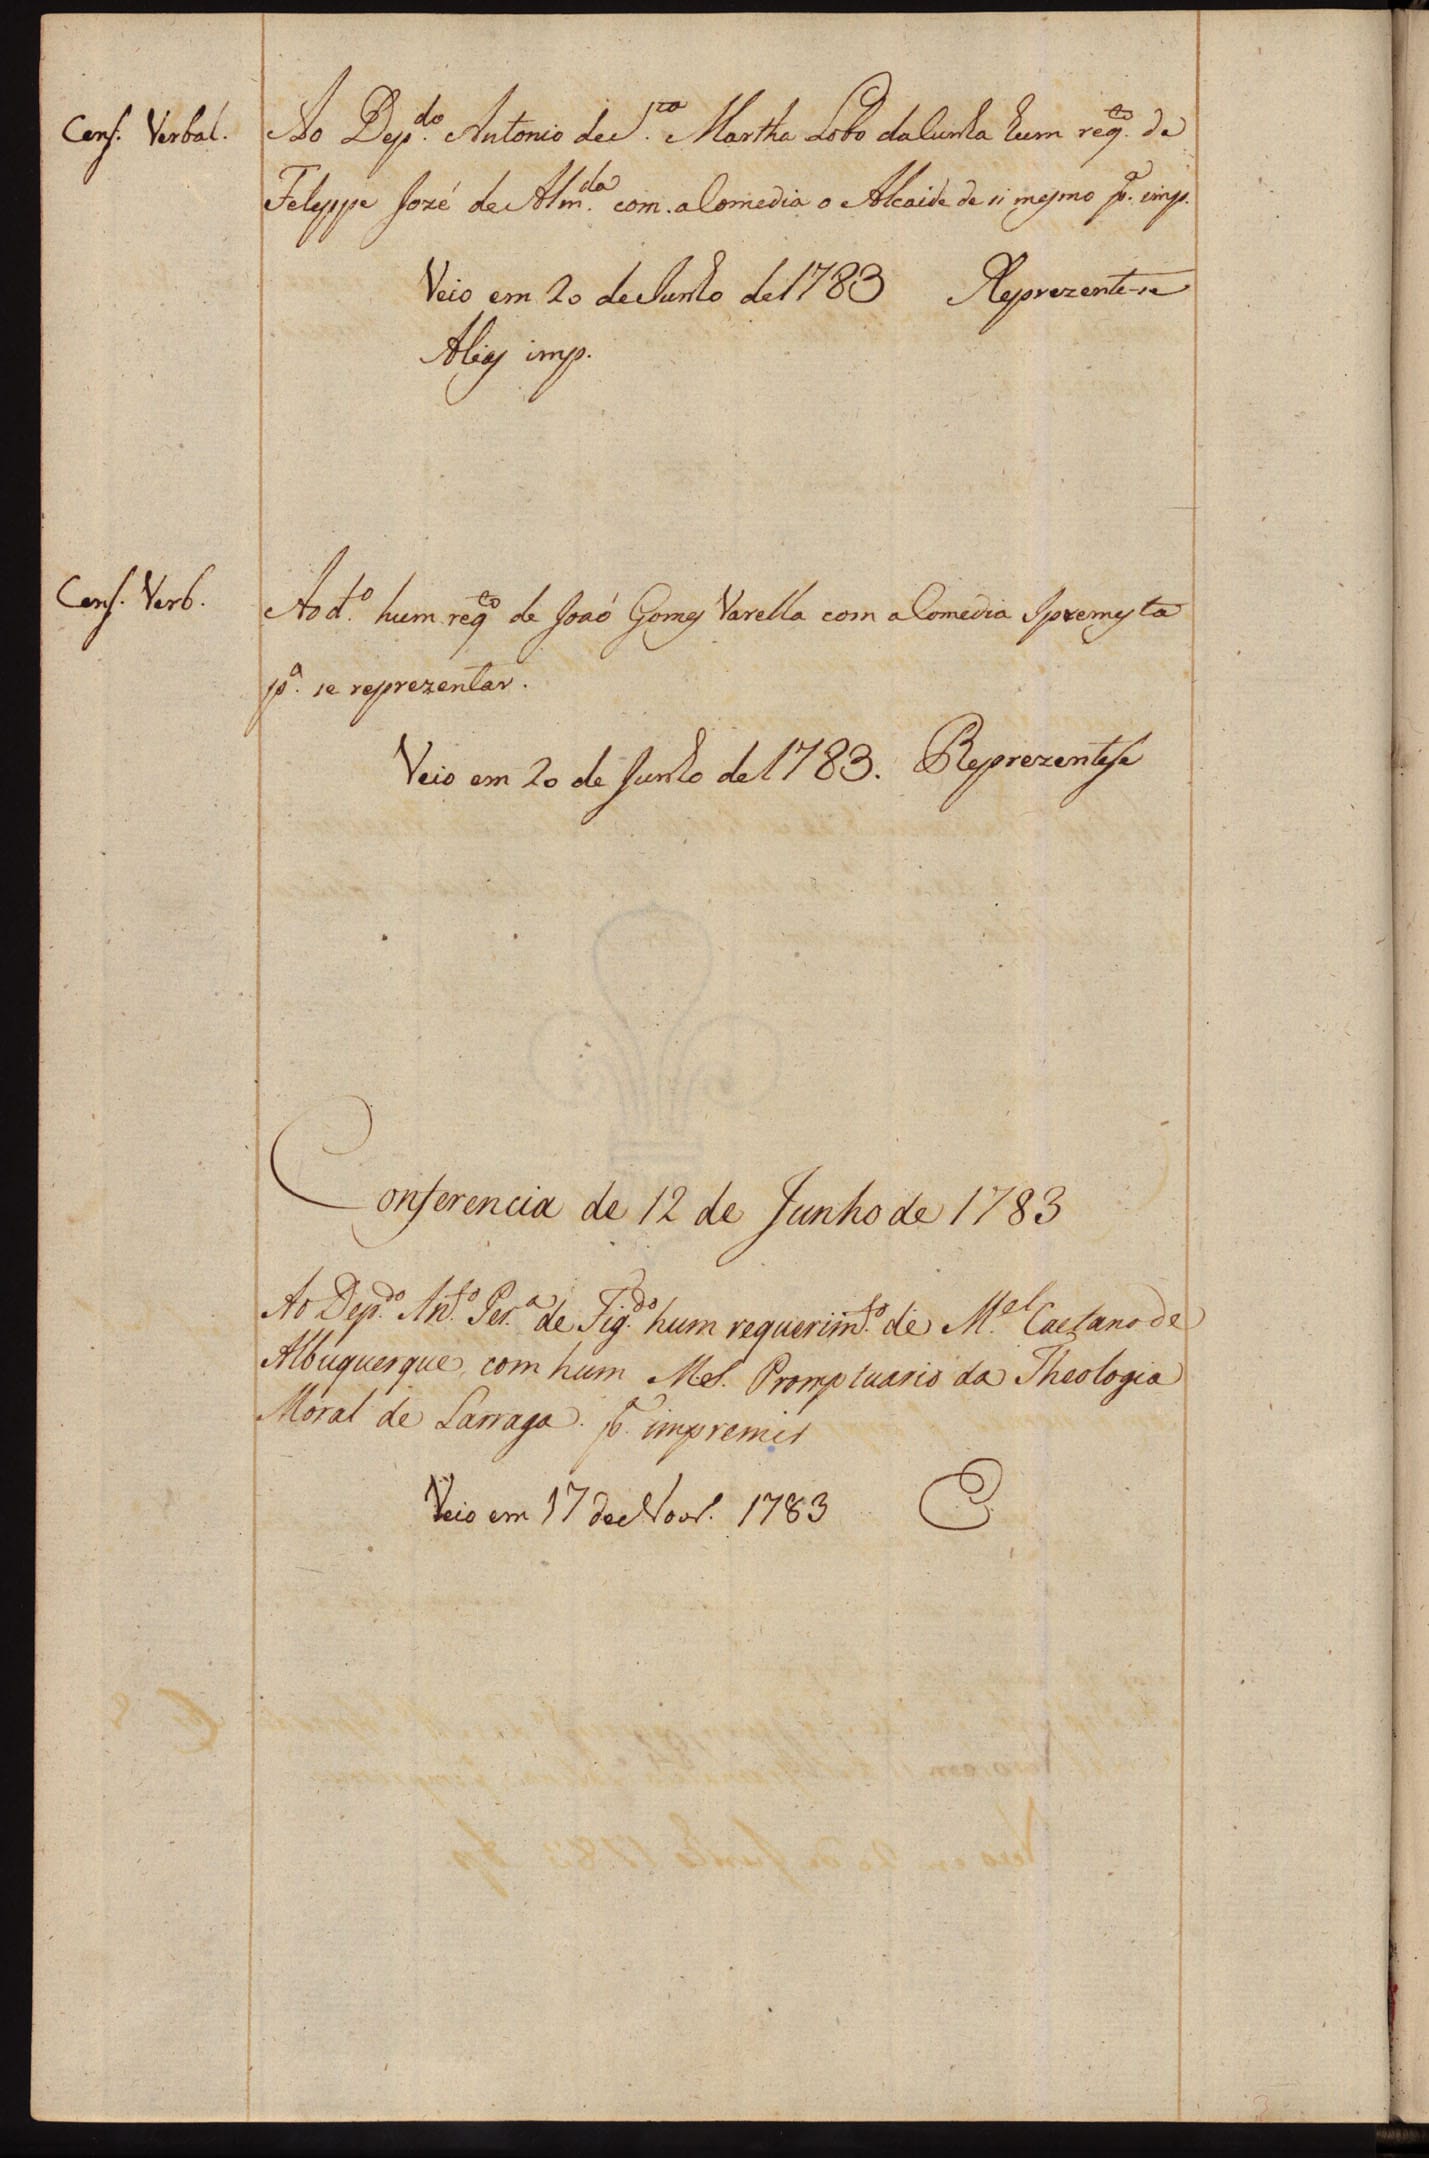 Cens. Verbal.
Ao Dep.do Antonio de S.ta Martha Lobo da Cunha hum req.to de
Feleppe Jozé de Alm.da com a Comedia o Alcaide de si mesmo p.a imp.
Veio em 20 de Junho de 1783 Reprezente-se
Alias imp.
Cens. Verb.
Ao d.o hum req.to de Joaõ Gomes Varella com a Comedia Ipremesta
p.a se reprezentar.
Veio em 20 de Junho de 1783. Reprezentesse
Conferencia de 12 de Junho de 1783
Ao Dep.do An.to Per.a de Fig.do hum requerim.to de M.el Caetano de
Albuquerque, com hum M.s. Promptuario da Theologia
Moral de Larraga. p.a impremir
Veio em 17 de Novr. 1783 E.